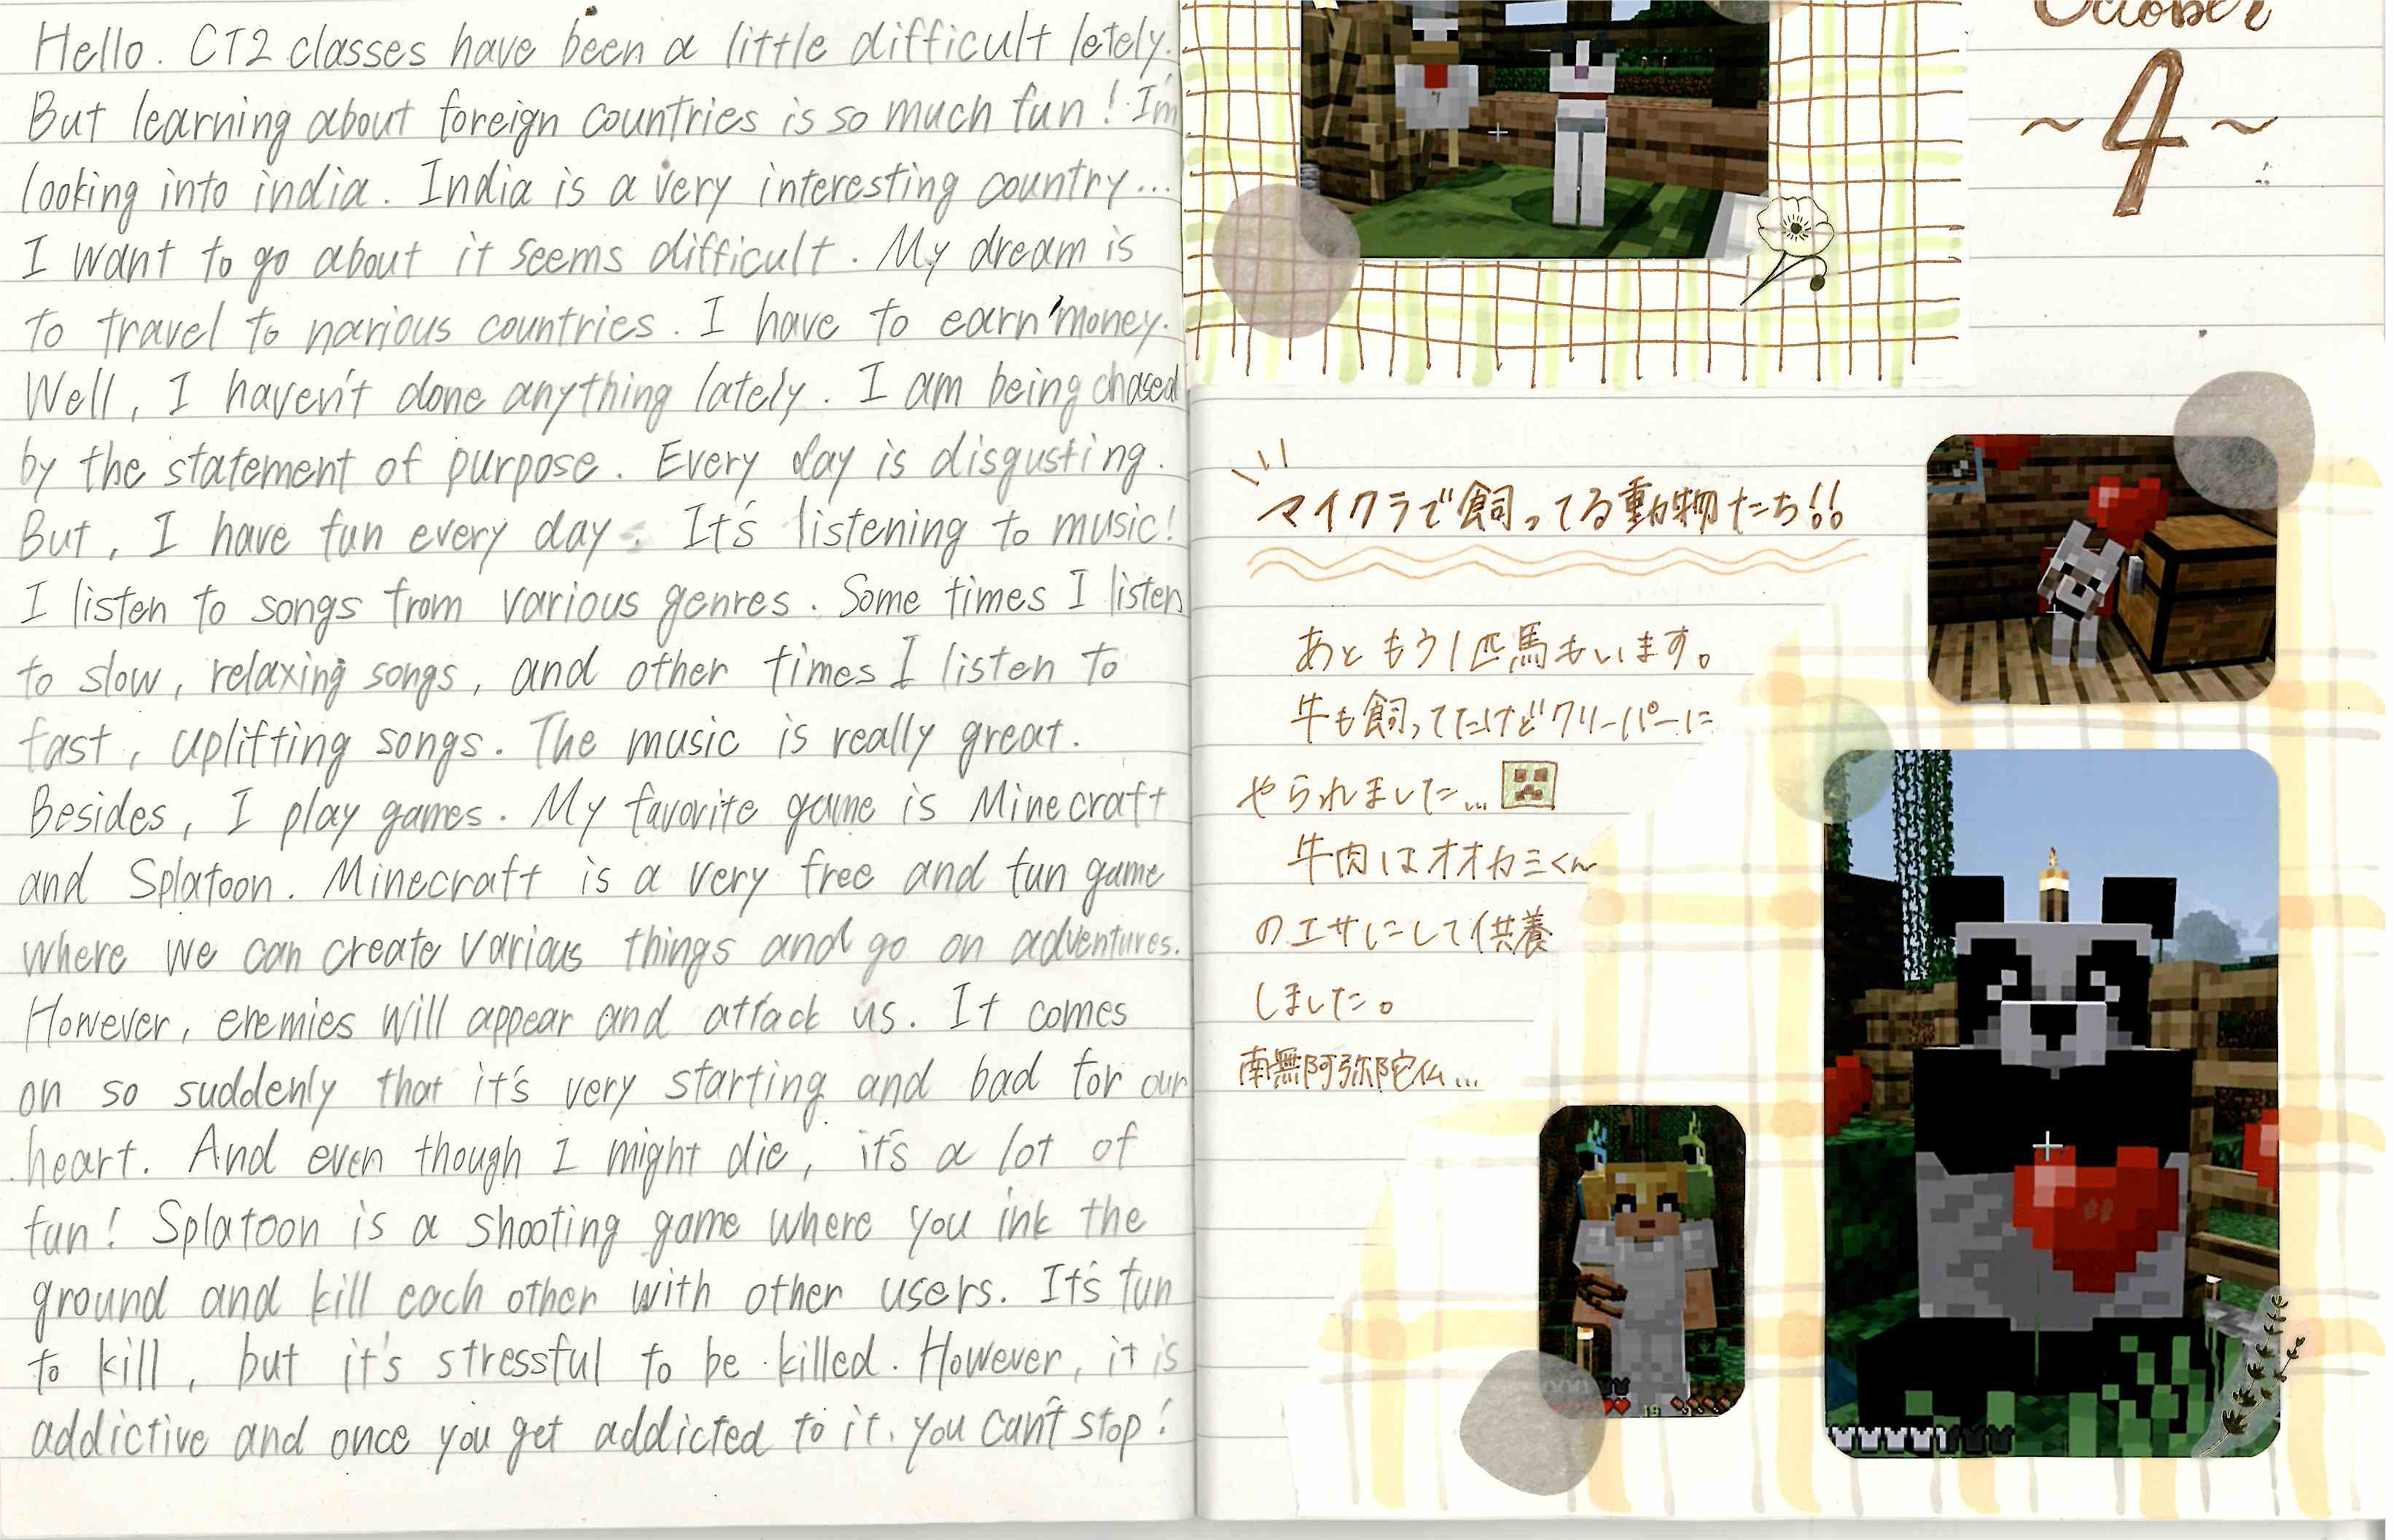 Hello. CT2 classes have been a little difficult letely.
But learning about foreign countries is so much fun! I'm
looking into india. India is a very interesting country...
I want to go about it seems difficult. My dream is
to travel to narious countries. I have to earn money.
Well, I haven't done anything lately. I am being chased
by the statement of purpose. Every day is disgusting.
But, I have fun every day. It's listening to music!
I listen to songs from various genres. Some times I listen
to slow, relaxing songs, and other times I listen to
fast, uplifting songs. The music is really great.
Besides, I play games. My favorite game is Minecraft
and Splatoon. Minecraft is a very free and fun game
where we can create various things and go on adventures.
However, enemies will appear and attack us. It comes
on so suddenly that it's very starting and bad for our
heart. And even though I might die, it's a lot of
fun! Splatoon is a shooting game where you ink the
ground and kill each other with other users. It's fun
to kill, but it's stressful to be killed. However, it is
addictive and once you get addicted to it, you can't stop!
October
~4~
マイクラで飼ってる動物たち!!
あともう1匹馬もいます。
牛も飼ってたけどクリーパーに
やられました...
牛肉はオオカミくん
のエサにして供養
しました。
南無阿弥陀仏...
19